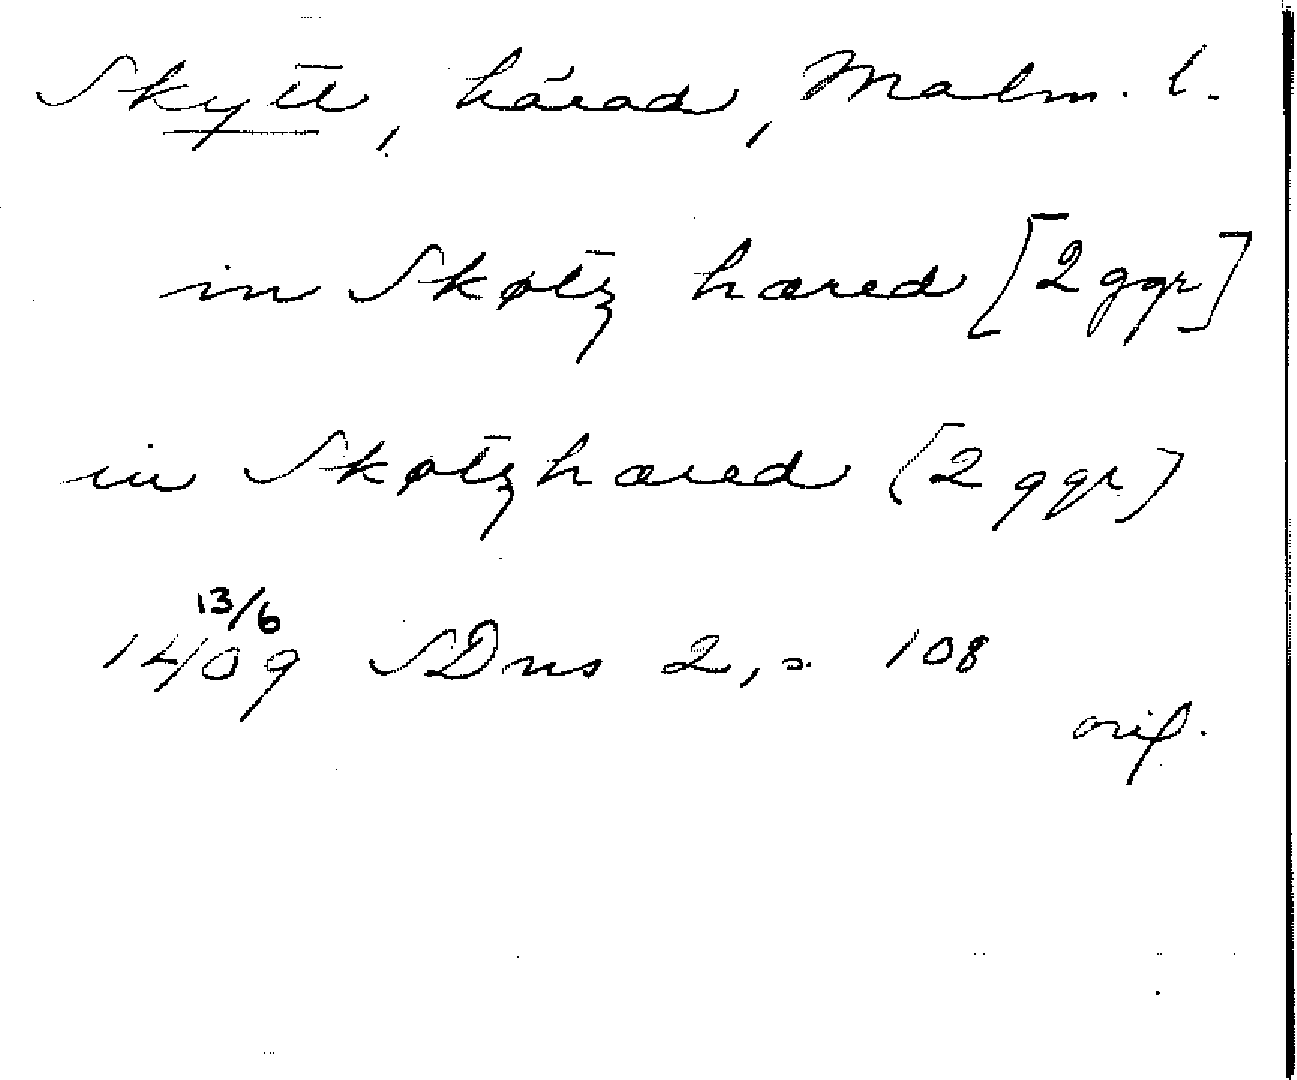 Skytt, härad, Malm. l.
in Skøtz hæred [2 ggr]
in Skøtzhæred [2 ggr]
13/6
1409 SDns 2, s. 108
orig.